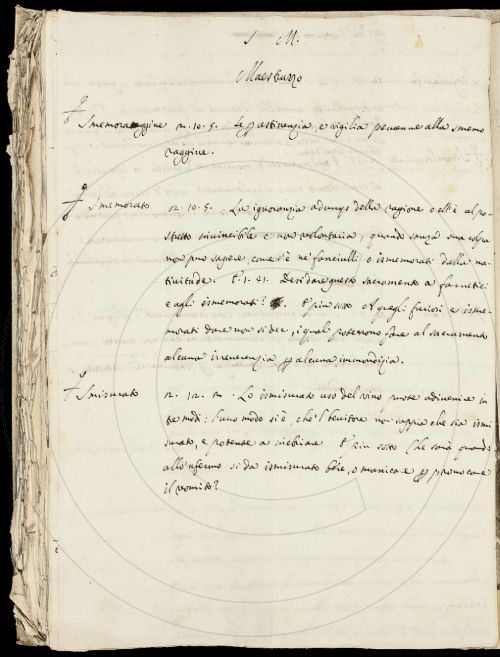 S M.
Maestruzzo
Smemoraggine 2. 10. 5. Le astinenzia e vigilia pervenne alla smemo
raggine.
Smemorato 2. 10. 5. La ignoranzia adunq; della ragione ell'è al po
stutto invincibile e non volontaria, quando sanza sua colpa
non puo sapere, come s'è ne' fanciulli e ismemorati dalla na
tivitude. E 1. 21. Dessi dare questo sacramento a farnetici
e agli ismemorati? E più sotto Ai quegli furiosi e isme
morati dare non si dee, i quali potessono fare al sacramento
alcuna irreverenzia alcuna immondizia.
Smisurato 2. 12. 2. Lo ismisurato uso del vino puote advenire in
tre modi: l'uno modo si è, che 'l bevitore non sappia che sia ismi
surato, e potente a inebriare. E più sotto Che sarà quando
allo 'nfermo si dà ismisurato bere, o manicare provocare
il vomito?